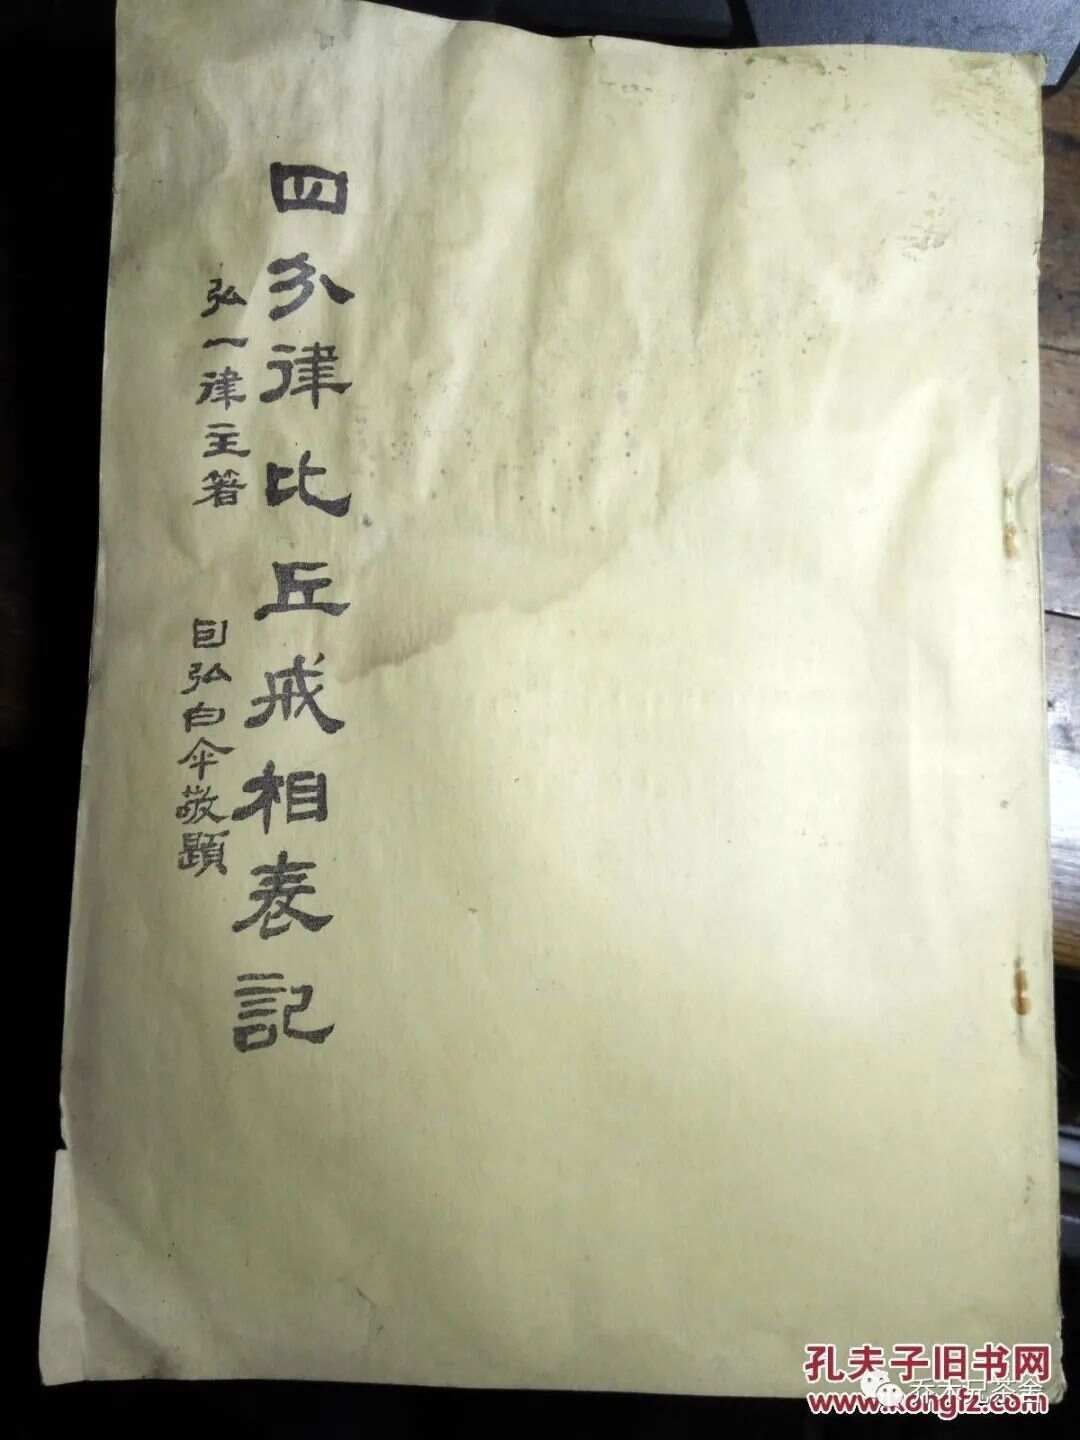 四分律比丘戒相表記
弘一律主著
白傘敬題
孔夫子旧书网
www.kongfz.com